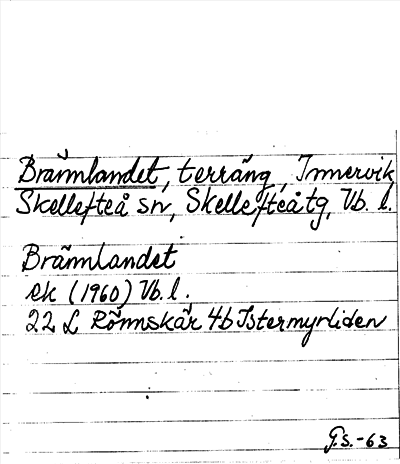 Brännlandet, terräng, Innervik
Skellefteå sn, Skellefteå tg, Vb. l.
Brännlandet
ek (1960) Vb. l.
22 L Rönnskär 4b Istermyrliden
G.S.-63